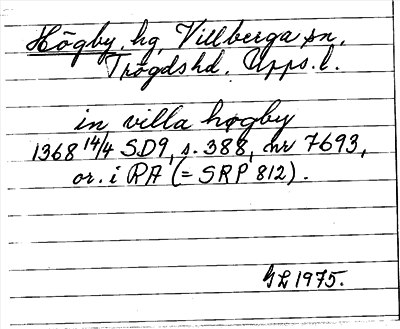 Högby, hg, Villberga sn,
Trögds hd, Upps. l.
in villa høgby
1368 14/4 SD9, s. 388, nr 7693,
or. i RA (= SRP 812).
GL 1975.